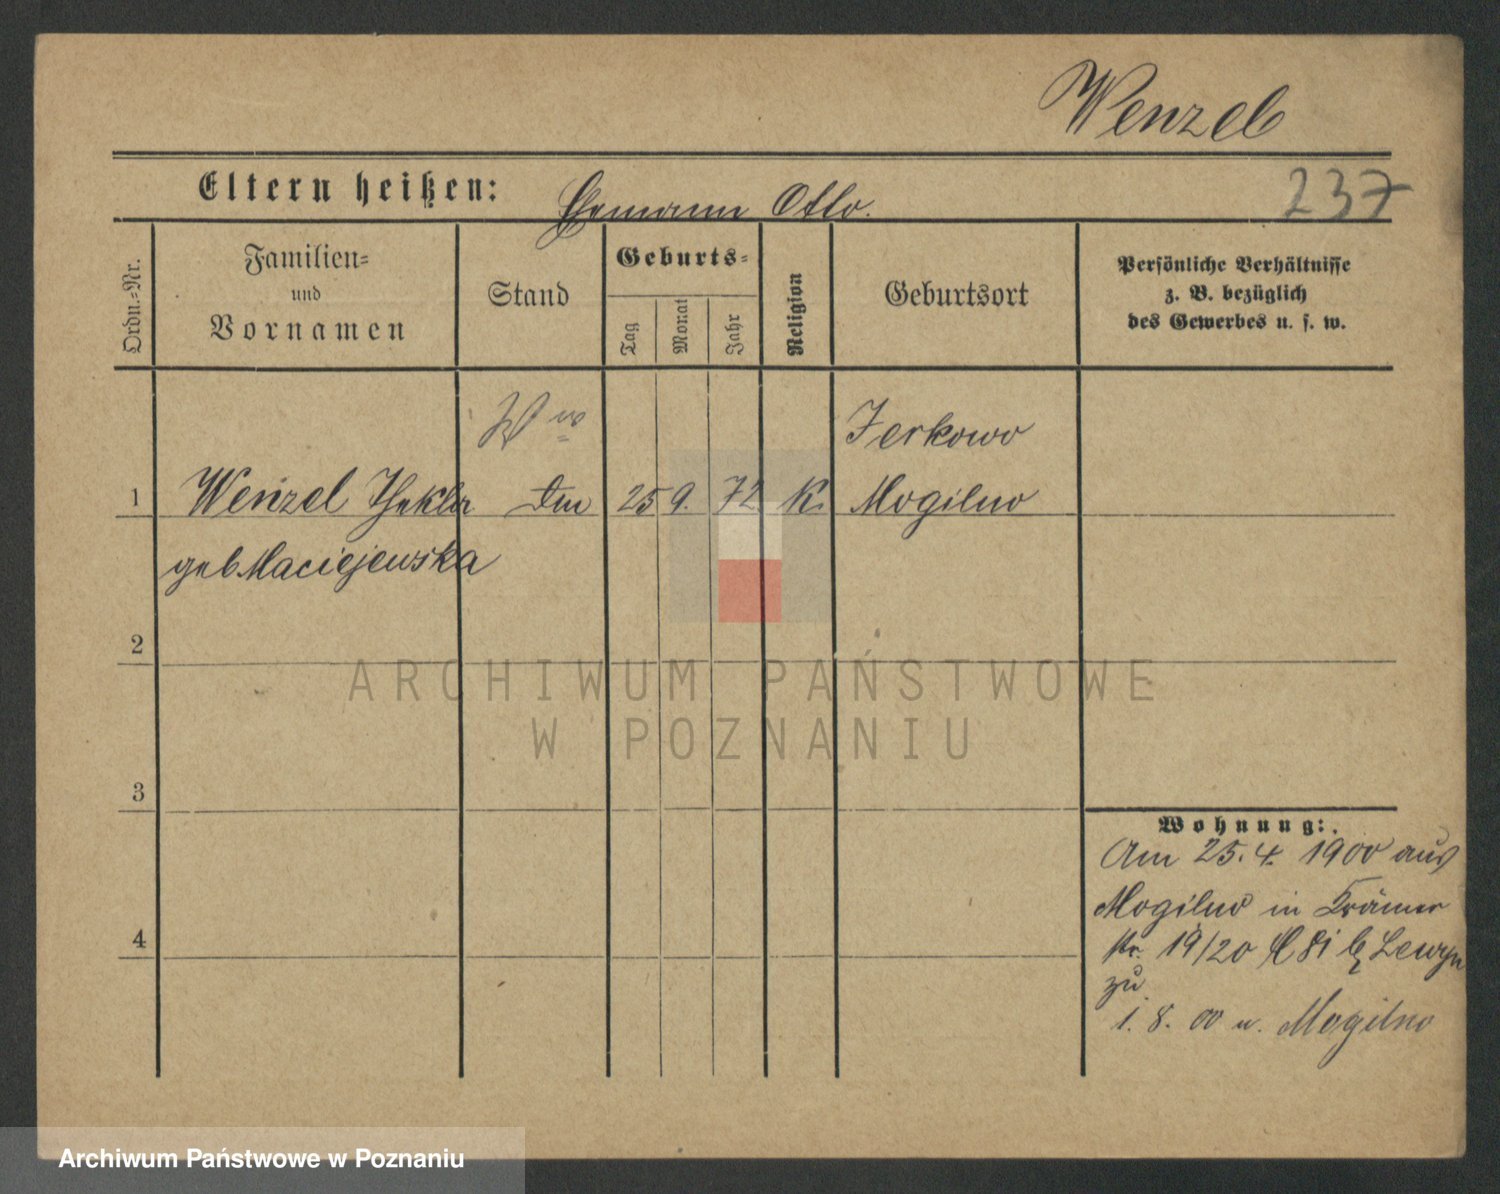 Wenzel
237
Eltern heißen: Ehemann Otto.
Ordn.=Nr.
Familien=
und
Vornamen
Stand
Geburts=
Tag
Monat
Jahr
Religion
Geburtsort
Persönliche Verhältnisse
z. B. bezüglich
des Gewerbes u. s. w.
Ww
Jerkowo
1 Wenzel Thekla 25 9. 72 K. Mogilno
geb Maciejewska
2
3
4
Wohnung:
Am 25. 4. 1900 aus
Mogilno in Krämer
str. 19/20 b Lewyn
zu
1. 8. 00 n. Mogilno
ARCHIWUM PAŃSTWOWE
W POZNANIU
Archiwum Państwowe w Poznaniu